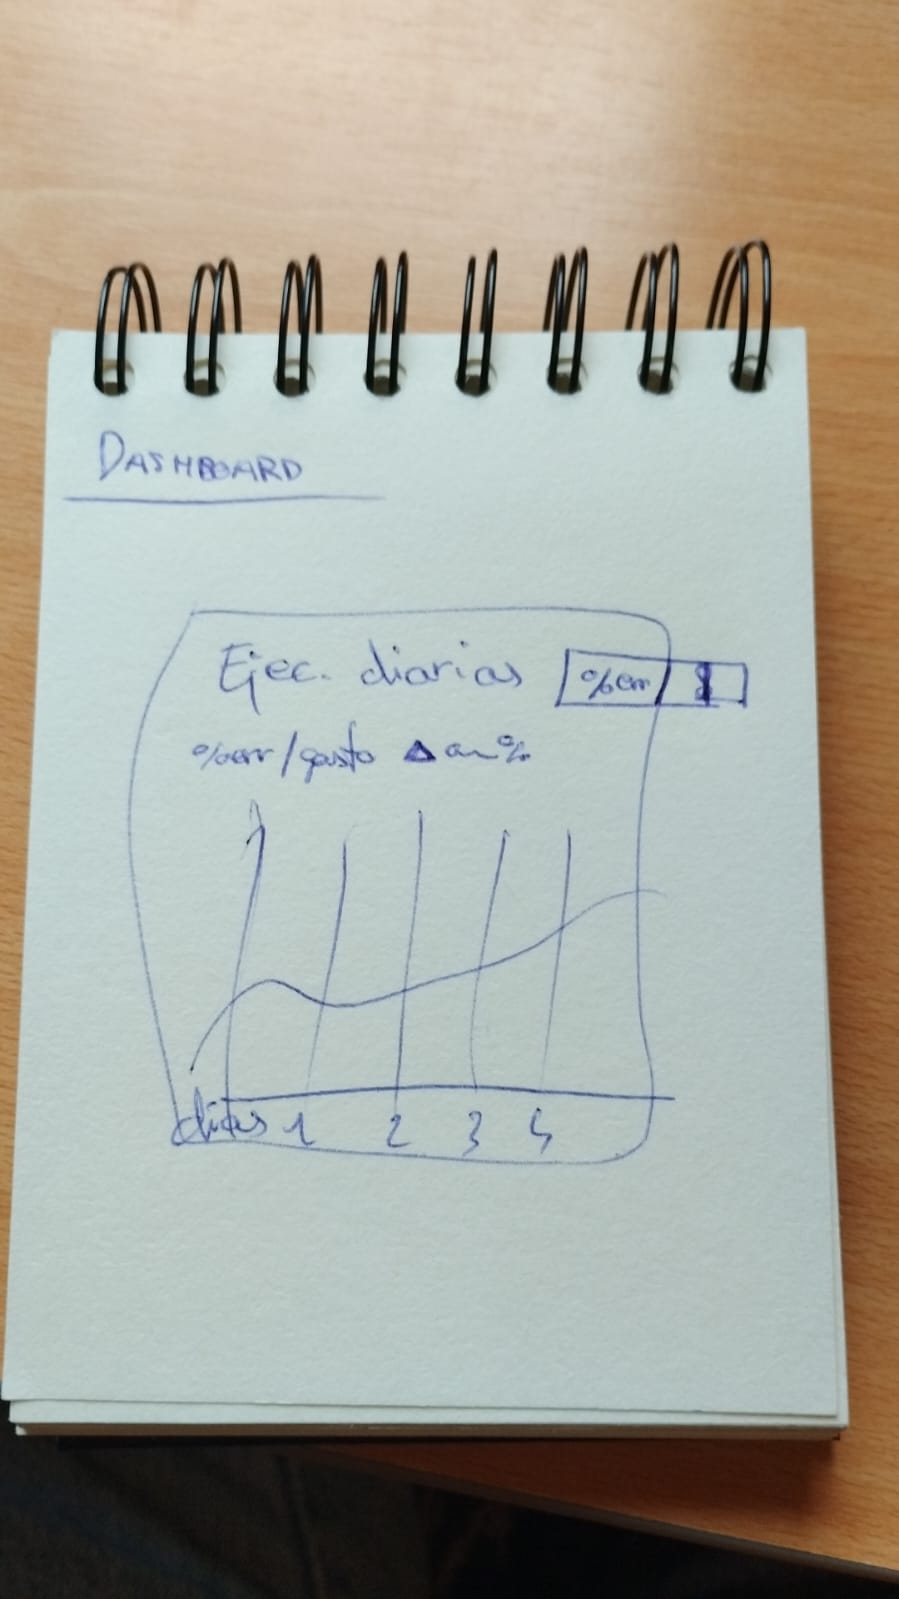 DASHBOARD
Ejec. diarias %err
%err/gasto Δ en %
dias 1 2 3 4